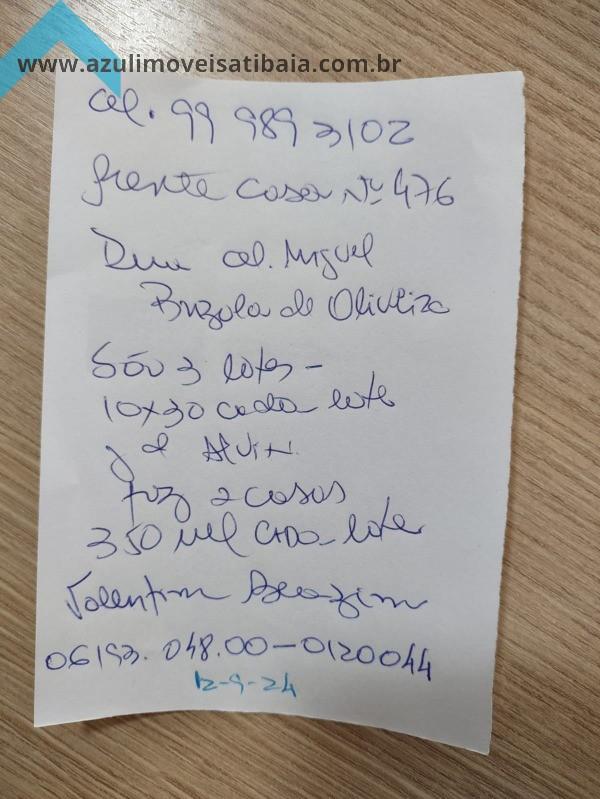 www.azulimoveisatibaia.com.br
Cel. 99 989 3102
frente casa Nº 476
Rua Cel. Miguel
Brizola de Oliveira
São 3 lotes -
10x30 cada lote
Jd Alvin
faz 2 casas
350 mil cada lote
Valentim
06193.048.00-0120044
12-9-24